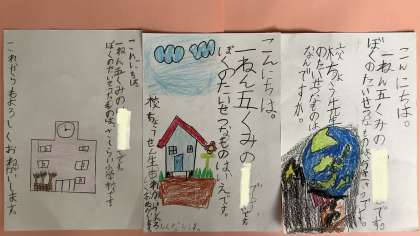 こんにちは。
一ねん五くみの です。
ぼくのたいせつなものはちきゅうです。
校ちょう先生
のたいせつなものは
なんですか。
こんにちは。
一ねん五くみの です。
ぼくのたいせつなものはいえです。
校ちょうせん生
こんにちは
一ねん五くみの です。
ぼくのたいせつなものは 小学校です
これからもよろしくおねがいします。